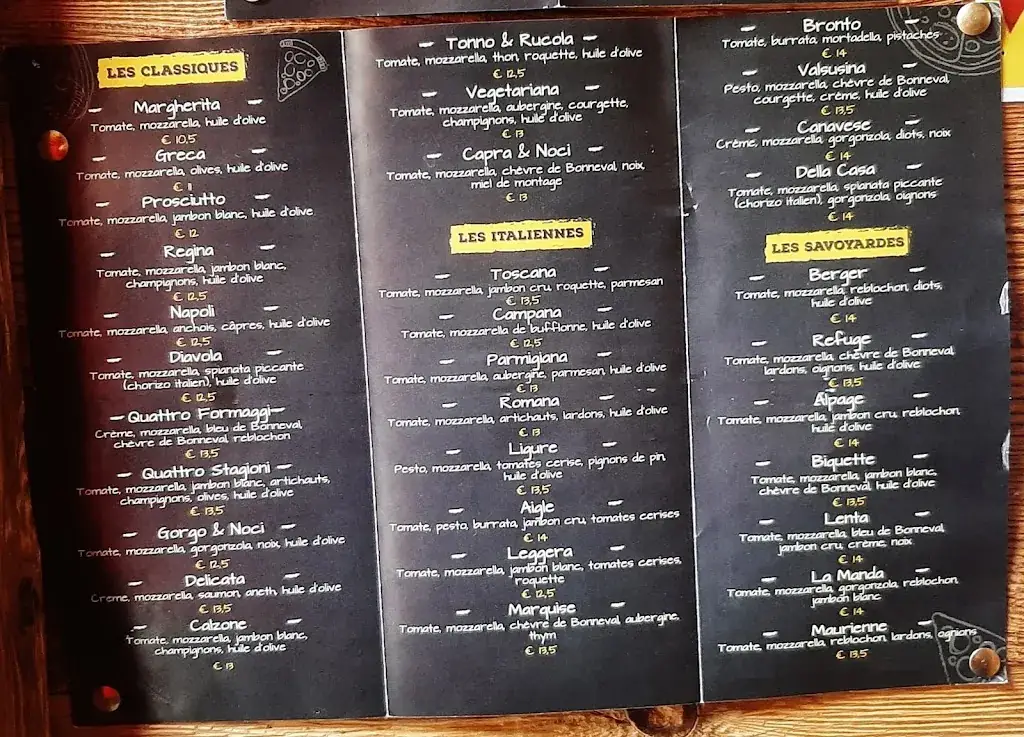 LES CLASSIQUES
Margherita
Tomate, mozzarella, huile d'olive
€ 10,5
Greca
Tomate, mozzarella, olives, huile d'olive
€ 11
Prosciutto
Tomate, mozzarella, jambon blanc, huile d'olive
€ 12
Regina
Tomate, mozzarella, jambon blanc,
champignons, huile d'olive
€ 12,5
Napoli
Tomate, mozzarella, anchois, câpres, huile d'olive
€ 12,5
Diavola
Tomate, mozzarella, spianata piccante
(chorizo italien), huile d'olive
€ 12,5
Quattro Formaggi
Crème, mozzarella, bleu de Bonneval,
chèvre de Bonneval, reblochon
€ 13,5
Quattro Stagioni
Tomate, mozzarella, jambon blanc, artichauts,
champignons, olives, huile d'olive
€ 13,5
Gorgo & Noci
Tomate, mozzarella, gorgonzola, noix, huile d'olive
€ 12,5
Delicata
Crème, mozzarella, saumon, aneth, huile d'olive
€ 13,5
Calzone
Tomate, mozzarella, jambon blanc,
champignons, huile d'olive
€ 13
Tonno & Rucola
Tomate, mozzarella, thon, roquette, huile d'olive
€ 12,5
Vegetariana
Tomate, mozzarella, aubergine, courgette,
champignons, huile d'olive
€ 13
Capra & Noci
Tomate, mozzarella, chèvre de Bonneval, noix,
miel de montage
€ 13
LES ITALIENNES
Toscana
Tomate, mozzarella, jambon cru, roquette, parmesan
€ 13,5
Campana
Tomate, mozzarella de bufflonne, huile d'olive
€ 12,5
Parmigiana
Tomate, mozzarella, aubergine, parmesan, huile d'olive
€ 13
Romana
Tomate, mozzarella, artichauts, lardons, huile d'olive
€ 13
Ligure
Pesto, mozzarella, tomates cerise, pignons de pin,
huile d'olive
€ 13,5
Aigle
Tomate, pesto, burrata, jambon cru, tomates cerises
€ 14
Leggera
Tomate, mozzarella, jambon blanc, tomates cerises,
roquette
€ 12,5
Marquise
Tomate, mozzarella, chèvre de Bonneval, aubergine,
thym
€ 13,5
Bronto
Tomate, burrata, mortadella, pistaches
€ 14
Valsusina
Pesto, mozzarella, chèvre de Bonneval,
courgette, crème, huile d'olive
€ 13,5
Canavese
Crème, mozzarella, gorgonzola, diots, noix
€ 14
Della Casa
Tomate, mozzarella, spianata piccante
(chorizo italien), gorgonzola, oignons
€ 14
LES SAVOYARDES
Berger
Tomate, mozzarella, reblochon, diots,
huile d'olive
€ 14
Refuge
Tomate, mozzarella, chèvre de Bonneval,
lardons, oignons, huile d'olive
€ 13,5
Alpage
Tomate, mozzarella, jambon cru, reblochon,
huile d'olive
€ 14
Biquette
Tomate, mozzarella, jambon blanc,
chèvre de Bonneval, huile d'olive
€ 13,5
Lenta
Tomate, mozzarella, bleu de Bonneval,
jambon cru, crème, noix
€ 14
La Manda
Tomate, mozzarella, gorgonzola, reblochon,
jambon blanc
€ 14
Maurienne
Tomate, mozzarella, reblochon, lardons, oignons
€ 13,5